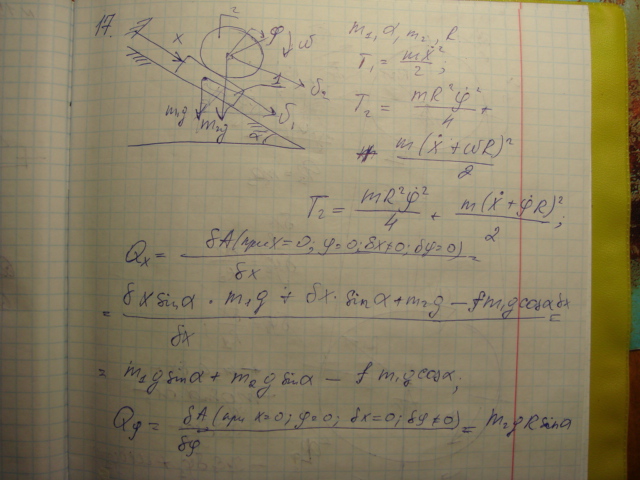 17.
2
x
φ
ω
1
υ₂
υ₁
m₁g
m₂g
α
m₁, α, m₂, R
T₁ = mẋ²/2;
T₂ = mR²φ̇²/4 +
m(ẋ + ωR)²/2
T₂ = mR²φ̇²/4 + m(ẋ + φ̇R)²/2;
Qₓ = δA(при x=0; φ=0; δx≠0; δφ=0)/δx =
= (δx sinα · m₁g + δx · sinα + m₂g − f m₁g cosα δx)/δx =
= m₁g sinα + m₂g sinα − f m₁g cosα;
Qφ = δA(при x=0; φ=0; δx=0; δφ≠0)/δφ = m₂gR sinα